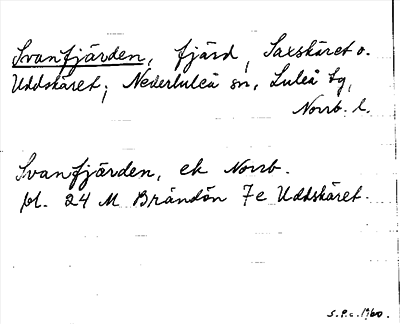 Svanfjärden, fjärd, Saxskäret o.
Uddskäret, Nederluleå sn, Luleå tg,
Norrb. l.
Svanfjärden, ek Norrb.
bl. 24 M Brändön 7e Uddskäret.
S.P.c. 1960.